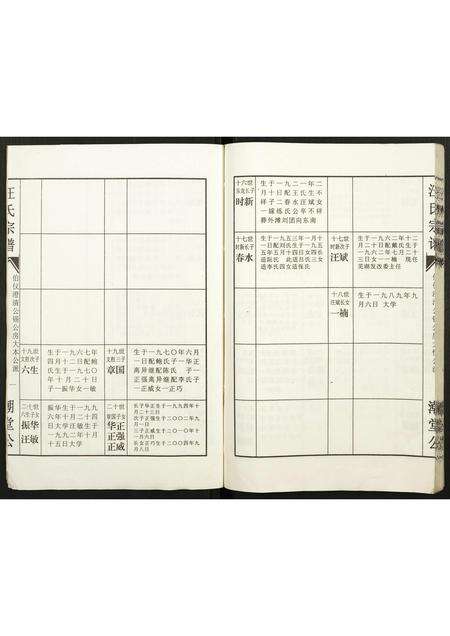 汪氏宗谱
潮堂公
十九世
文胜次子
六生
生于一九六七年
四月十二日配鲍
氏生于一九七〇
年十月二十日子
一振华女一敏
十九世
文胜三子
章国
生于一九七〇年六月
一日配鲍氏子一
离异继配陈氏 子一
正强离异继配李氏子
一正威女一正巧
二十世
六生子女
振华
汪敏
振华生于一九九
六年十月二十四
日大学汪敏生于
一九九二年十月
十五日大学
二十世
章国子女
华正
正强
正威
长子华正生于一九九四年十
月二十三日
次子正强生于二〇〇二年九
月一日
三子正威生于二〇一〇年十
一月六日
长女正巧生于二〇〇四年九
月八日
十六世
长子
时新
生于一九二一年二
月十日配王氏生不
祥子二春水汪斌女
一嫁练氏公卒不祥
葬外滩刘团向东南
十七世
时新长子
春水
生于一九五三年一月十
一日配刘氏生于一九五
五年五月十四日女四长
适阮氏 次适吕氏三女
适李氏四女适张氏
十七世
时新次子
汪斌
生于一九六二年十二
月二十日配戴氏生于
一九六二年七月二十
三日女一楠 现任
芜湖发改委主任
十八世
汪斌长女
一楠
生于一九八九年九
月六日 大学
潮堂公